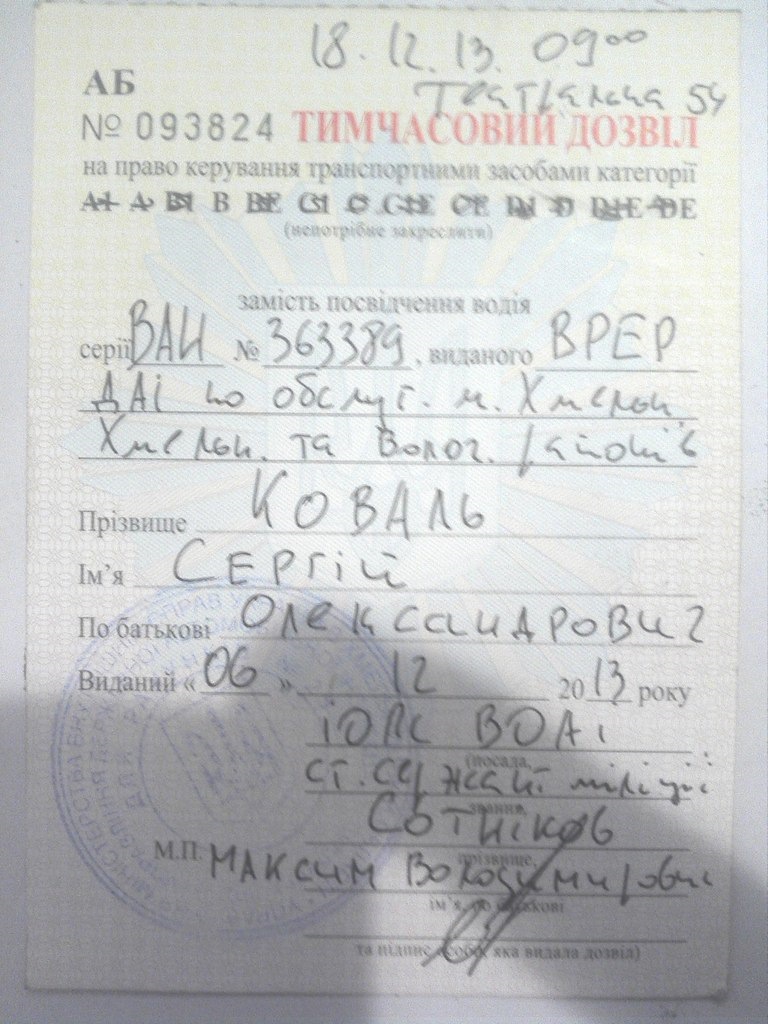 18.12.13. 09⁰⁰
АБ
Театральна 54
№ 093824 ТИМЧАСОВИЙ ДОЗВІЛ
на право керування транспортними засобами категорії
А1 А В1 В ВЕ С1 С С1Е СЕ D1 D D1E DE
(непотрібне закреслити)
замість посвідчення водія
серії ВАН № 363389, виданого ВРЕР
ДАІ по обслуг. м. Хмельн.
Хмельн. та Волоч. районів
Прізвище КОВАЛЬ
Ім'я СЕРГІЙ
По батькові Олександрович
Виданий « 06 » 12 20 13 року
(посада,
ст. сержант міліції
звання,
Сотніков
М.П. Максим Володимирович
прізвище,
ім'я, по батькові
та підпис особи, яка видала дозвіл)